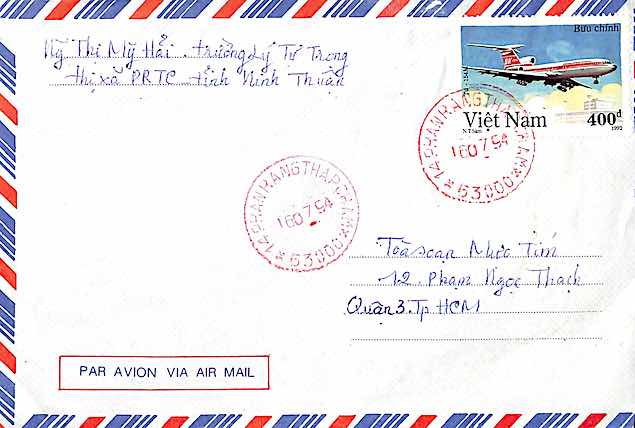 Mỹ Thị Mỹ Hải . trường Lý Tự Trọng
thị xã PRTC tỉnh Ninh Thuận
Bưu chính
Việt Nam 400đ
N.T Sâm 1992
14 PHANRANGTHAPCHAM
160 7 94
* 63000 *
14 PHANRANGTHAPCHAM
160 7 94
* 63000 *
Tòa soạn Mực Tím
12 . Phạm Ngọc Thạch
Quận 3. Tp HCM
PAR AVION VIA AIR MAIL